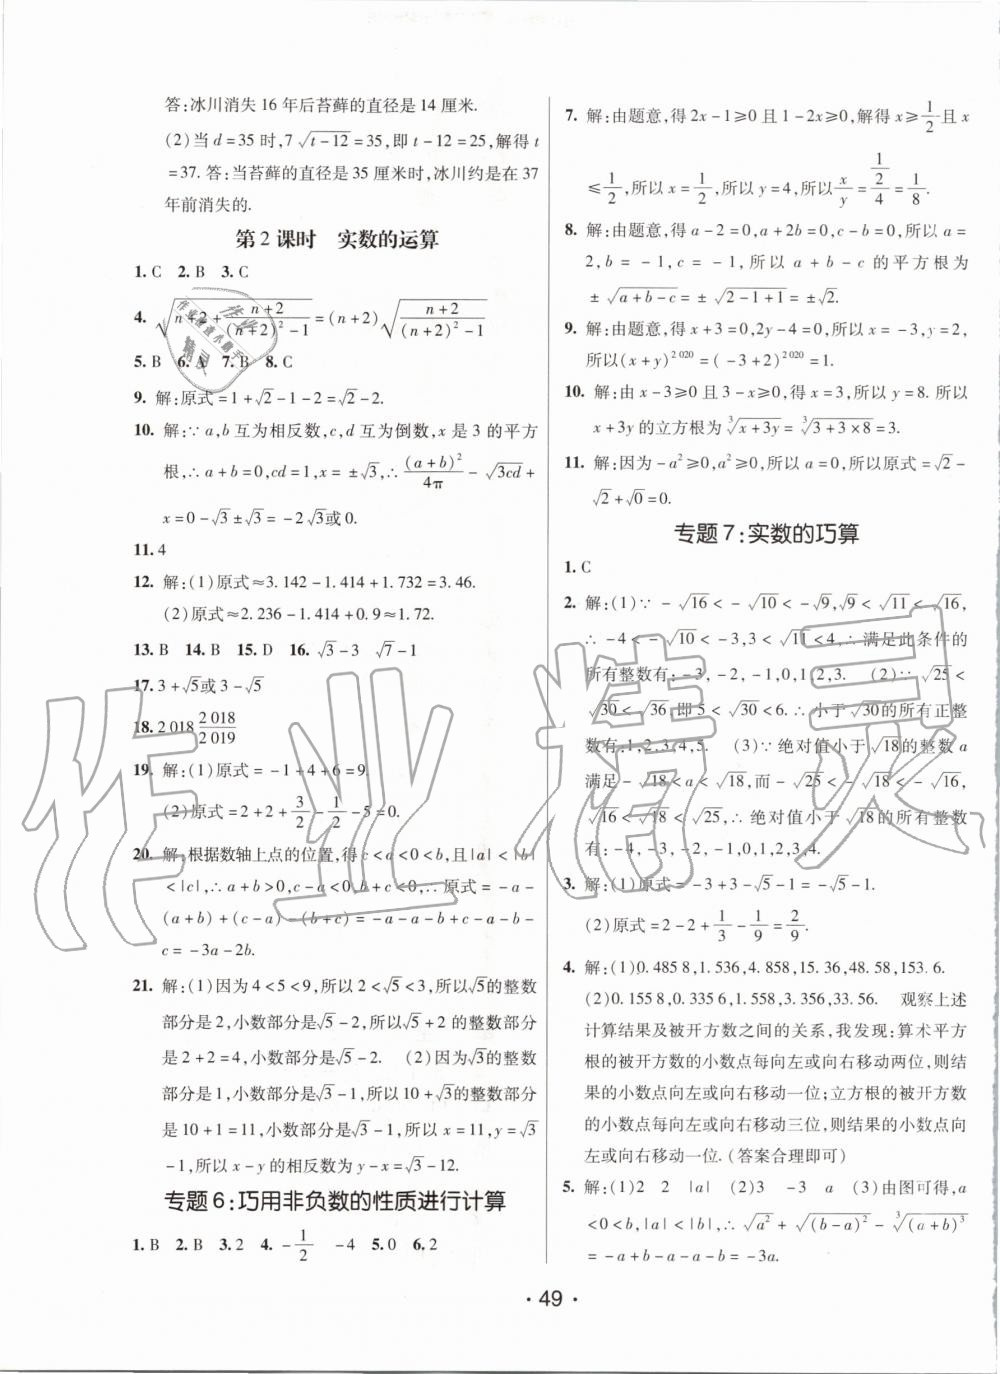 答:冰川消失 16 年后苔藓的直径是 14 厘米.
(2)当 d=35 时,7√(t-12)=35,即 t-12=25,解得 t
=37. 答:当苔藓的直径是 35 厘米时,冰川约是在 37
年前消失的.
第 2 课时 实数的运算
1. C 2. B 3. C
4. √(n+2+(n+2)/((n+2)²-1))=(n+2)√((n+2)/((n+2)²-1))
5. B 6. A 7. B 8. C
9. 解:原式=1+√2-1-2=√2-2.
10. 解:∵a,b 互为相反数,c,d 互为倒数,x 是 3 的平方
根,∴a+b=0,cd=1,x=±√3,∴(a+b)²/4π-√(3cd)+
x=0-√3±√3=-2√3或0.
11. 4
12. 解:(1)原式≈3.142-1.414+1.732=3.46.
(2)原式≈2.236-1.414+0.9≈1.72.
13. B 14. B 15. D 16. √3-3 √7-1
17. 3+√5或3-√5
18. 2 018 2 018/2 019
19. 解:(1)原式=-1+4+6=9.
(2)原式=2+2+3/2-1/2-5=0.
20. 解:根据数轴上点的位置,得 c<a<0<b,且|a|<|b|
<|c|,∴a+b>0,c-a<0,b+c<0,∴原式=-a-
(a+b)+(c-a)-(b+c)=-a-a-b+c-a-b-
c=-3a-2b.
21. 解:(1)因为4<5<9,所以2<√5<3,所以√5的整数
部分是2,小数部分是√5-2,所以√5+2的整数部分
是2+2=4,小数部分是√5-2. (2)因为√3的整数
部分是1,小数部分是√3-1,所以10+√3的整数部分
是10+1=11,小数部分是√3-1,所以 x=11,y=√3
-1,所以 x-y 的相反数为 y-x=√3-12.
专题 6:巧用非负数的性质进行计算
1. B 2. B 3. 2 4. -1/2 -4 5. 0 6. 2
7. 解:由题意,得2x-1≥0且1-2x≥0,解得x≥1/2且x
≤1/2,所以x=1/2,所以y=4,所以x/y=(1/2)/4=1/8.
8. 解:由题意,得 a-2=0,a+2b=0,c-b=0,所以 a=
2,b=-1,c=-1,所以 a+b-c 的平方根为
±√(a+b-c)=±√(2-1+1)=±√2.
9. 解:由题意,得x+3=0,2y-4=0,所以x=-3,y=2,
所以(x+y)²⁰²⁰=(-3+2)²⁰²⁰=1.
10. 解:由 x-3≥0 且 3-x≥0,得 x=3,所以 y=8. 所以
x+3y的立方根为∛(x+3y)=∛(3+3×8)=3.
11. 解:因为-a²≥0,a²≥0,所以a=0,所以原式=√2-
√2+√0=0.
专题 7:实数的巧算
1. C
2. 解:(1)∵-√16<-√10<-√9,√9<√11<√16,
∴-4<-√10<-3,3<√11<4,∴满足此条件的
所有整数有:-3,-2,-1,0,1,2,3. (2)∵√25<
√30<√36,即5<√30<6.∴小于√30的所有正整
数有:1,2,3,4,5. (3)∵绝对值小于√18的整数a
满足-√18<a<√18,而-√25<-√18<-√16,
√16<√18<√25,∴绝对值小于√18的所有整数
有:-4,-3,-2,-1,0,1,2,3,4.
3. 解:(1)原式=-3+3-√5-1=-√5-1.
(2)原式=2-2+1/3-1/9=2/9.
4. 解:(1)0.485 8,1.536,4.858,15.36,48.58,153.6.
(2)0.155 8,0.335 6,1.558,3.356,33.56. 观察上述
计算结果及被开方数之间的关系,我发现:算术平方
根的被开方数的小数点每向左或向右移动两位,则结
果的小数点向左或向右移动一位;立方根的被开方数
的小数点每向左或向右移动三位,则结果的小数点向
左或向右移动一位.(答案合理即可)
5. 解:(1)2 2 |a| (2)3 -3 a (3)由图可得,a
<0<b,|a|<|b|,∴√a²+√(b-a)²-∛(a+b)³
=-a+b-a-a-b=-3a.
· 49 ·
作业精灵
作业检查小助手
精灵